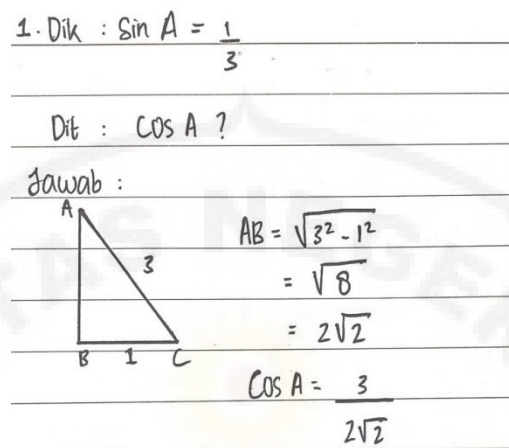 1. Dik : Sin A = 1/3
Dit : Cos A ?
Jawab :
A
3
B 1 C
AB = √(3² - 1²)
= √8
= 2√2
Cos A = 3/(2√2)
TAS NEGER